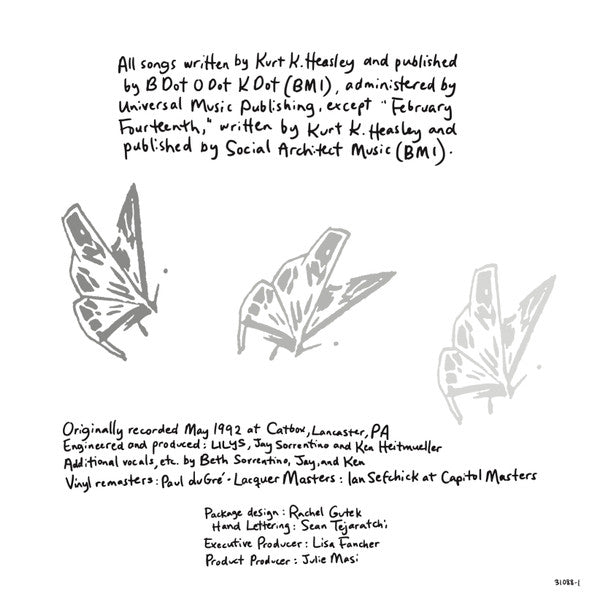 All songs written by Kurt K. Heasley and published
by B Dot O Dot K Dot (BMI), administered by
Universal Music Publishing, except "February
Fourteenth," written by Kurt K. Heasley and
published by Social Architect Music (BMI).
Originally recorded May 1992 at Catbox, Lancaster, PA
Engineered and produced: LILYS, Jay Sorrentino and Ken Heitmueller
Additional vocals, etc. by Beth Sorrentino, Jay, and Ken
Vinyl remasters: Paul duGré · Lacquer Masters: Ian Sefchick at Capitol Masters
Package design: Rachel Gutek
Hand Lettering: Sean Tejaratchi
Executive Producer: Lisa Fancher
Product Producer: Julie Masi
31088-1